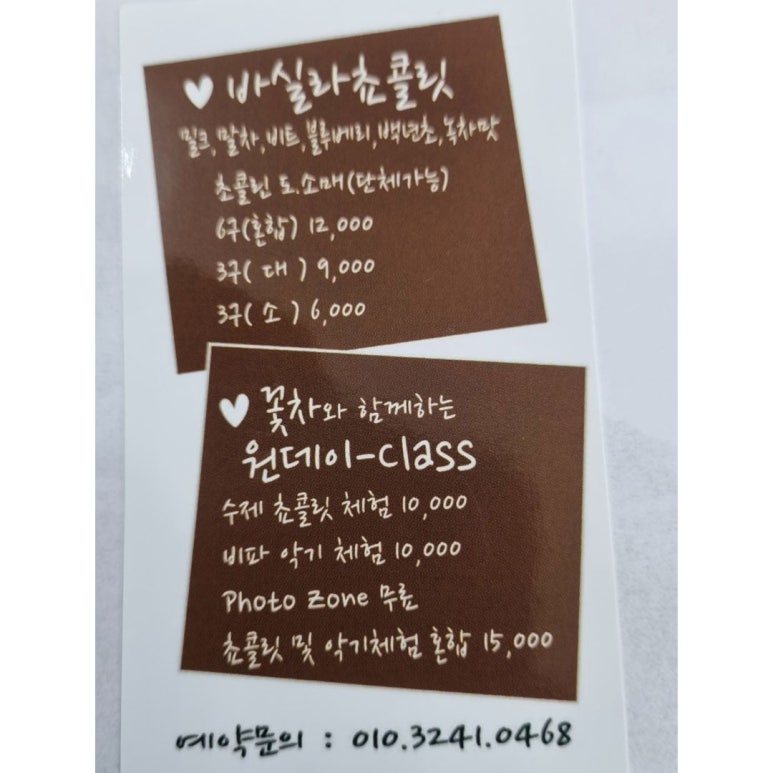 바실라쵸콜릿
밀크,말차,비트,블루베리,백년초,녹차맛
쵸콜릿 도.소매(단체가능)
6구(혼합) 12,000
3구( 대 ) 9,000
3구( 소 ) 6,000
꽃차와 함께하는
원데이-class
수제 쵸콜릿 체험 10,000
비파 악기 체험 10,000
Photo Zone 무료
쵸콜릿 및 악기체험 혼합 15,000
예약문의 : 010.3241.0468